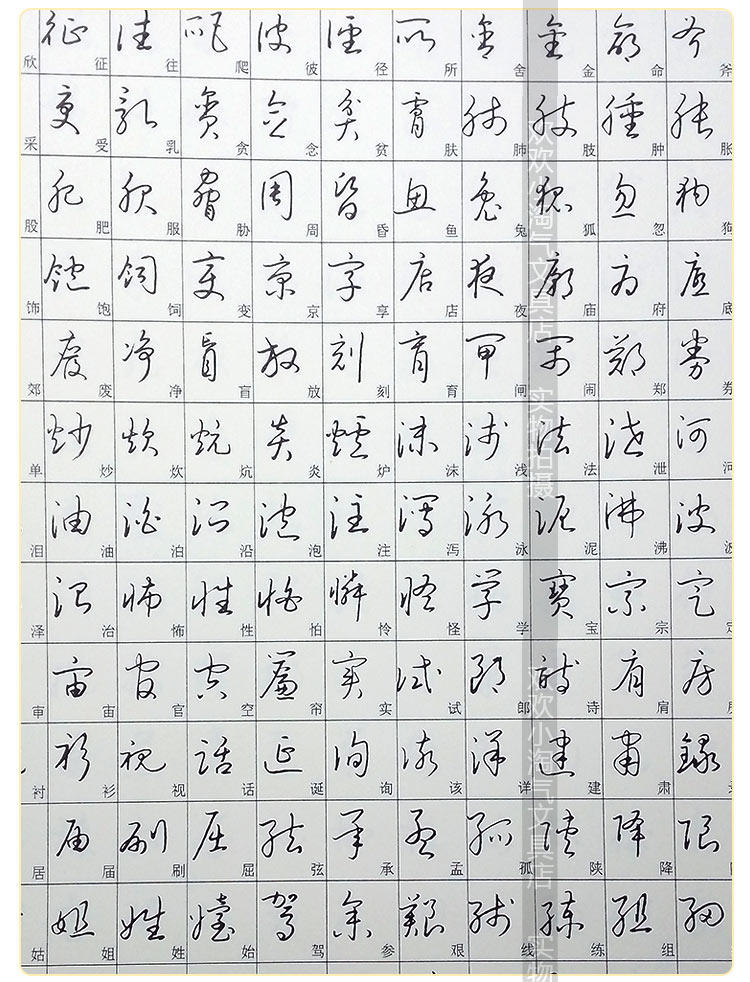 欣 征 往 爬 彼 径 所 舍 金 命 斧
采 受 乳 贪 念 贫 肤 肺 肢 肿 胀
股 肥 服 胁 周 昏 鱼 兔 狐 忽 狗
饰 饱 饲 变 京 享 店 夜 庙 府 底
郊 废 净 盲 放 刻 育 闸 闹 郑 券
单 炒 炊 炕 炎 炉 沫 浅 法 泄 河
泪 油 泊 沿 泡 注 泻 泳 泥 沸 波
泽 治 怖 性 怕 怜 怪 学 宝 宗 定
审 宙 官 空 帘 实 试 郎 诗 肩 房
衬 衫 视 话 诞 询 该 详 建 肃 录
居 届 刷 屈 弦 承 孟 孤 陕 降 限
姑 姐 姓 始 驾 参 艰 线 练 组 细
欢欢小淘气文具店 实物拍摄
欢欢小淘气文具店 实物